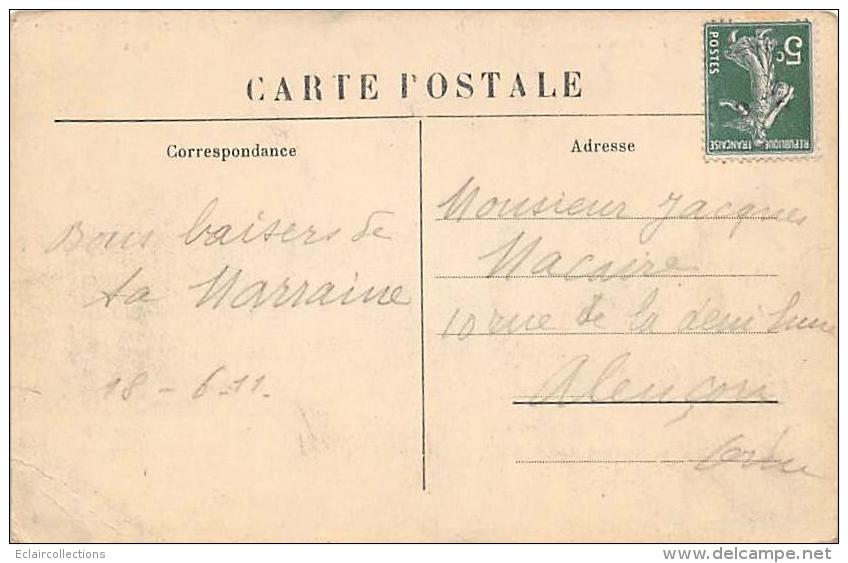 CARTE POSTALE
5c
POSTES
REPUBLIQUE FRANÇAISE
Correspondance
Bons baisers de
ta Marraine
18-6-11.
Adresse
Monsieur Jacques
Macaire
10 rue de la demi lune
Alençon
Orne
Eclaircollections
http://www.delcampe.net